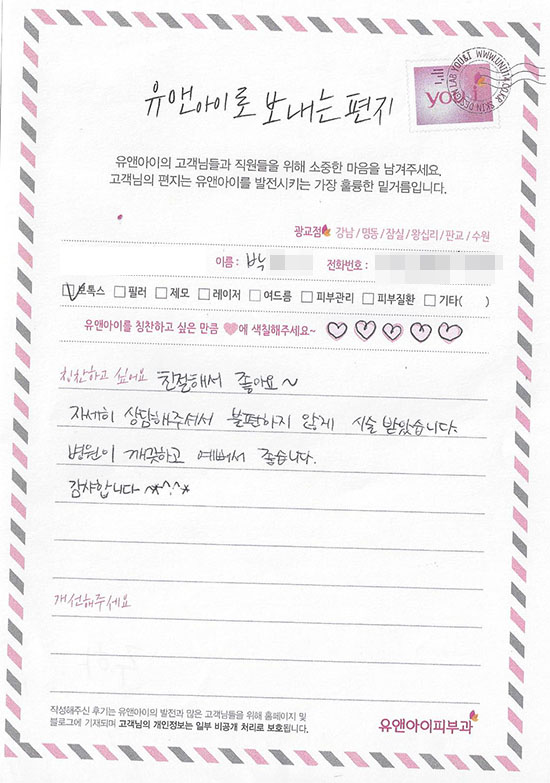 SKIN DESIGN LAB YOU&I WWW.UNI114.CO.KR
you&i
유앤아이로 보내는 편지
유앤아이의 고객님들과 직원들을 위해 소중한 마음을 남겨주세요.
고객님의 편지는 유앤아이를 발전시키는 가장 훌륭한 밑거름입니다.
광교점 강남 / 명동 / 잠실 / 왕십리 / 판교 / 수원
이름 : 박 전화번호 :
보톡스 필러 제모 레이저 여드름 피부관리 피부질환 기타( )
유앤아이를 칭찬하고 싶은 만큼 ♥에 색칠해주세요~ ♡♡♡♡♡
칭찬하고 싶어요 친절해서 좋아요~
자세히 상담해주셔서 불편하지 않게 시술 받았습니다.
병원이 깨끗하고 예뻐서 좋습니다.
감사합니다 ~*^.^*
개선해주세요
작성해주신 후기는 유앤아이의 발전과 많은 고객님들을 위해 홈페이지 및
블로그에 기재되며 고객님의 개인정보는 일부 비공개 처리로 보호됩니다.
유앤아이피부과